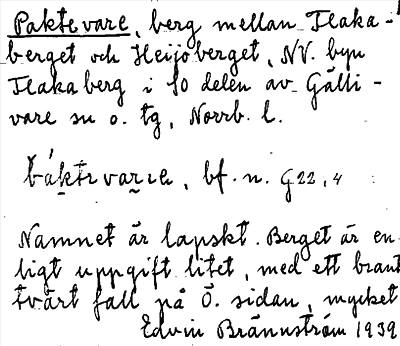 Paktevare, berg mellan Flaka-
berget och Heijoberget, NV. byn
Flakaberg i SO delen av Gälli-
vare sn o. tg, Norrb. l.
bf. n. G22, 4
Namnet är lapskt. Berget är en-
ligt uppgift litet, med ett brant
tvärt fall på Ö. sidan, mycket
Edvin Brännström 1939